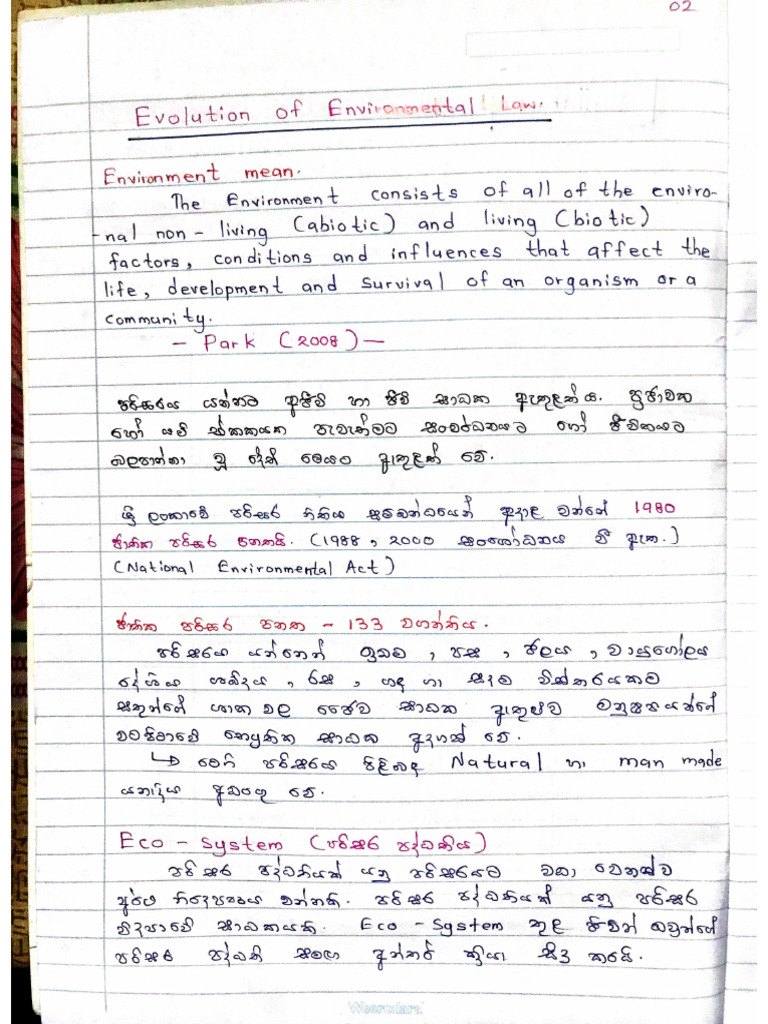 02
Evolution of Environmental Law.
Environment mean.
The Environment consists of all of the enviro-
-nal non - living (abiotic) and living (biotic)
factors, conditions and influences that affect the
life, development and survival of an organism or a
community.
- Park (2008) -
පරිසරය යන්නට අජීවී හා ජීවී සාධක ඇතුළත් ය. ප්‍රජාවක
හෝ යම් පැවැත්මට සංවර්ධනයට හෝ ජීවිතයට
බලපාන්නා වූ දේත් මෙයට ඇතුළත් වේ.
ශ්‍රී ලංකාවේ පරිසර නීතිය සම්බන්ධයෙන් අදාළ වන්නේ 1980
ජාතික පරිසර පනතයි. (1988, 2000 සංශෝධනය වී ඇත.)
(National Environmental Act)
ජාතික පරිසර පනත - 133 වගන්තිය.
පරිසරය යන්නෙන් ඉඩම, පස, ජලය, වායුගෝලය
දේශීය ශබ්දය, රස, ගඳ හා
සතුන්ගේ ශාක වල ජෛව සාධක මනුෂ්‍යයන්ගේ
වටපිටාවේ භෞතික සාධක අදහස් වේ.
↳ මෙහි පරිසරය පිළිබඳ Natural හා man made
යනාදිය අඩංගු වේ.
Eco - System (පරිසර පද්ධතිය)
පරිසර පද්ධතියක් යනු පරිසරයට වඩා වෙනස්ව
අර්ථ නිරූපණය වන්නකි. පරිසර පද්ධතියක් යනු පරිසර
විද්‍යාවේ සාධකයකි. Eco - System තුළ ජීවත් වවුන්ගේ
පරිසර පද්ධති සමඟ අන්තර් ක්‍රියා සිදු කරයි.
Weerodara